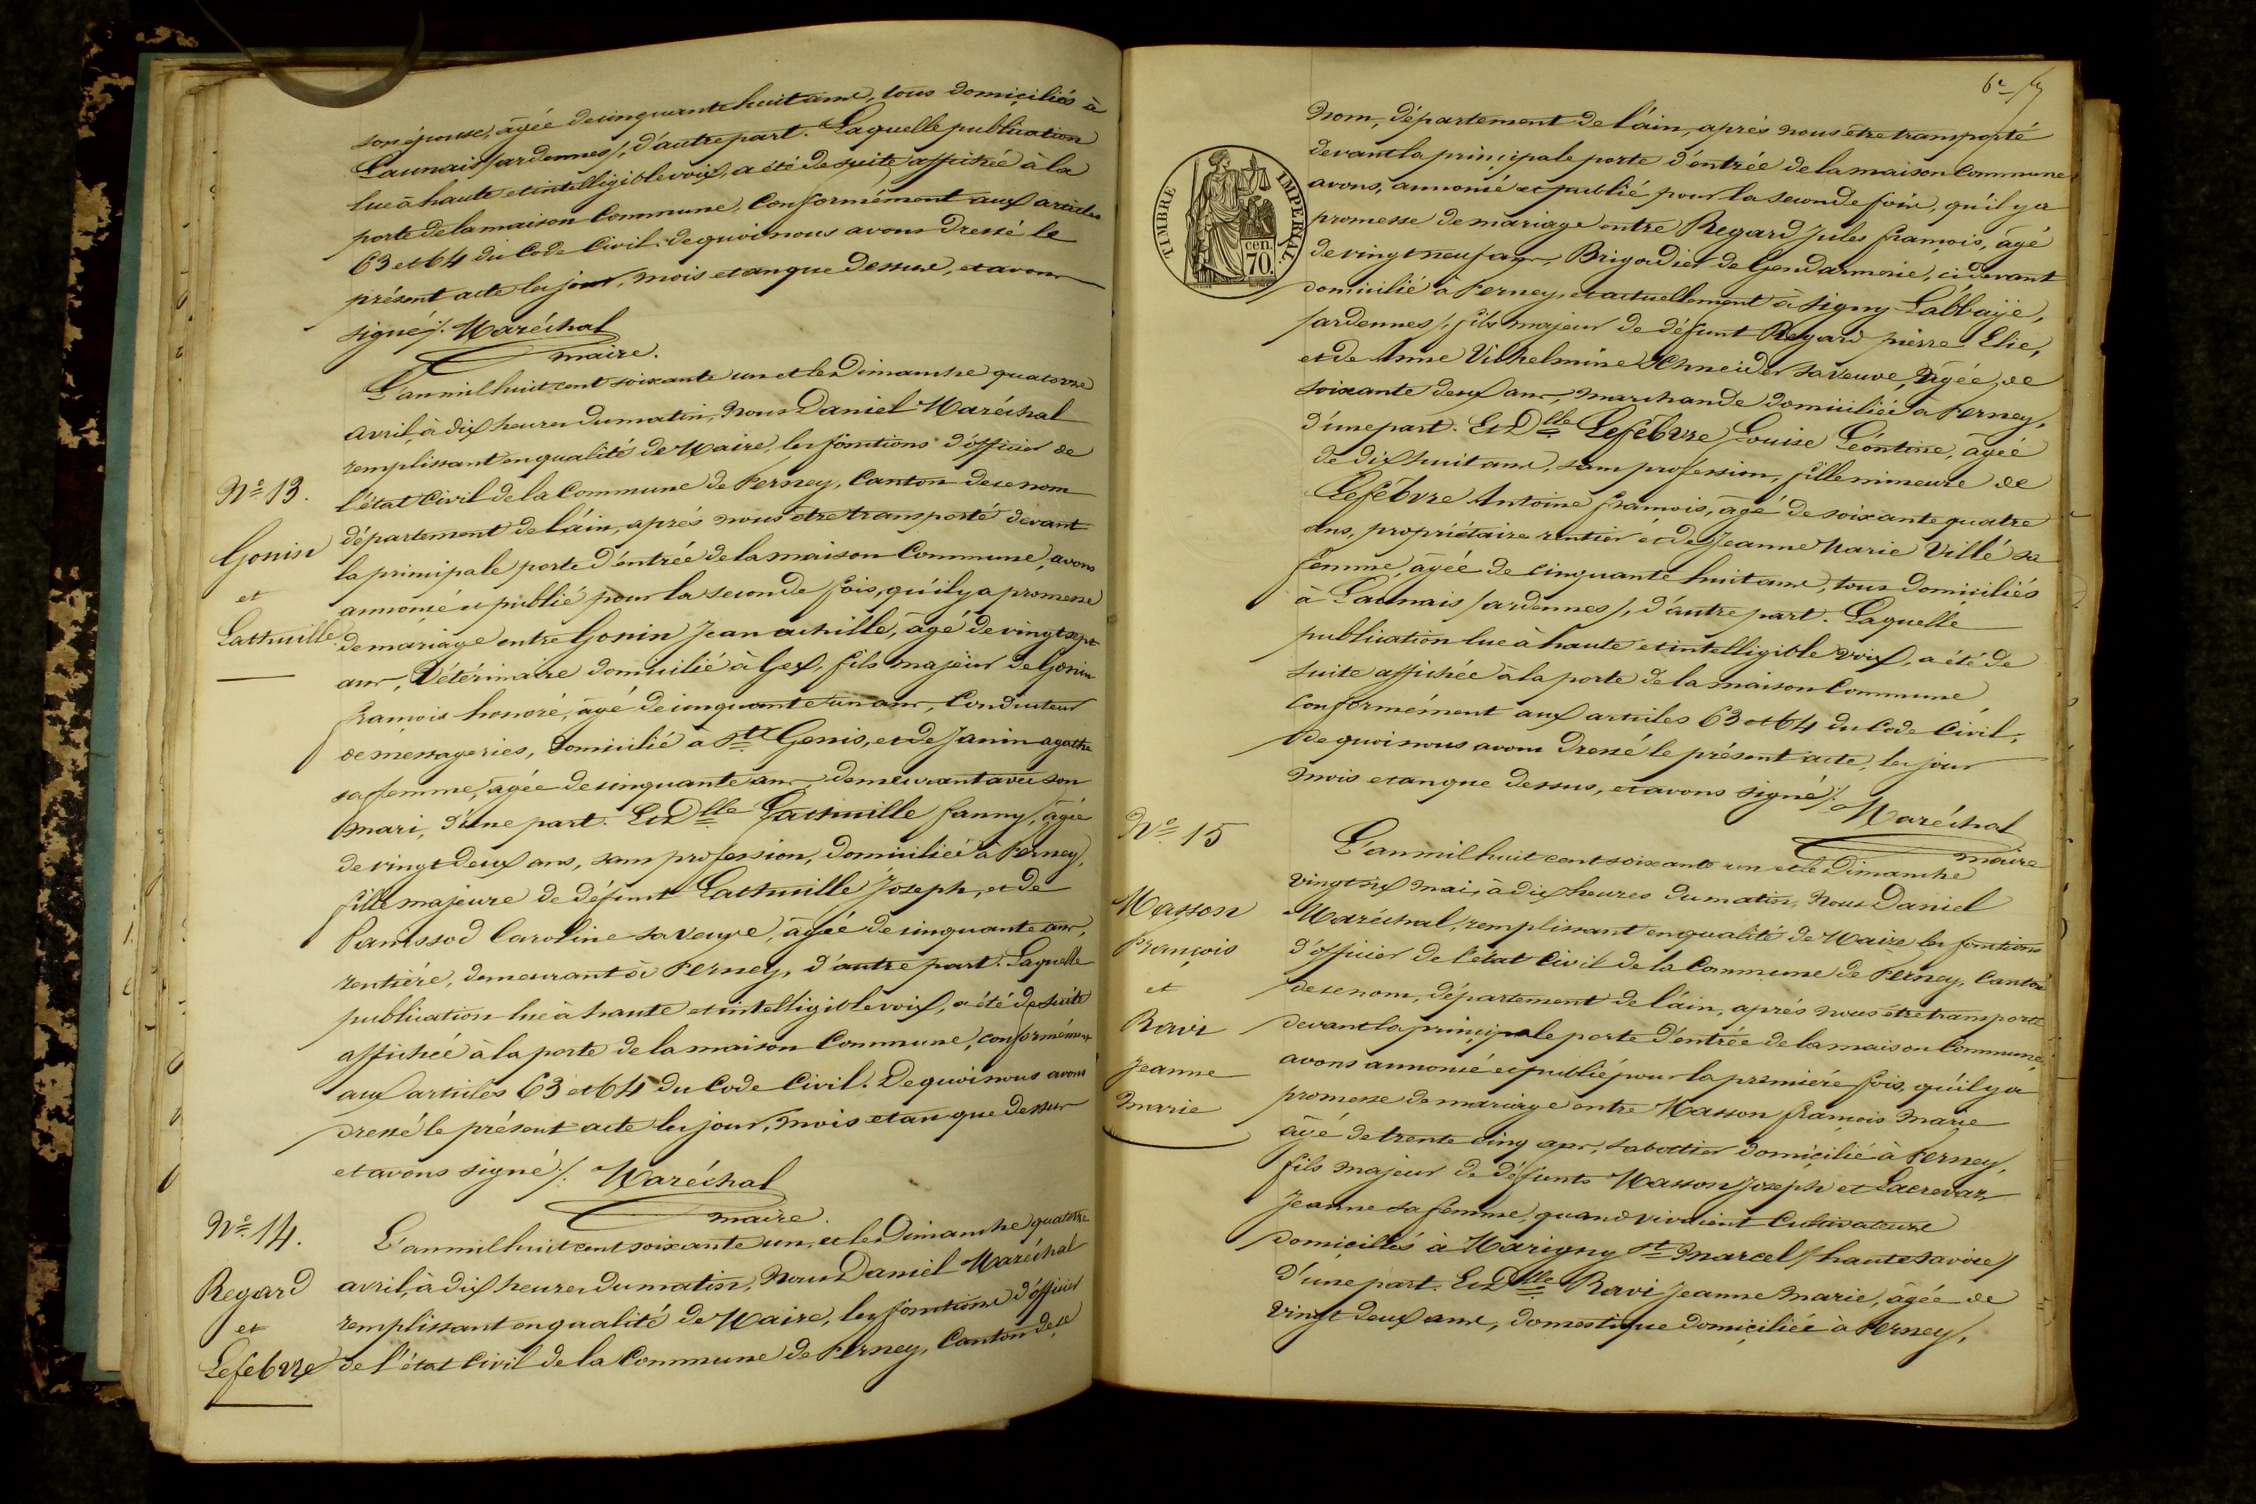 son épouse, âgée de cinquante huit ans, tous domiciliés à
Launais /ardennes/, d'autre part. Laquelle publication
lue à haute et intelligible voix, a été de suite affichée à la
porte de la maison Commune, Conformément aux articles
63 et 64 du Code Civil. de quoi nous avons dressé le
présent acte les jour, mois et an que dessus, et avons
signé /. Maréchal
maire.
L'an mil huit cent soixante un et le Dimanche quatorze
avril, à dix heures du matin, Nous Daniel Maréchal
remplissant en qualité de Maire, les fonctions d'officier de
Nº 13.
l'état Civil de la Commune de Ferney, Canton de ce nom
département de l'ain, après nous être transporté devant
Gonin
la principale porte d'entrée de la maison Commune, avons
et
annoncé et publié pour la seconde fois, qu'il y a promesse
Lathuille
de mariage entre Gonin Jean achille, âgé de vingt sept
ans, Vétérinaire domicilié à Gex, fils majeur de Gonin
françois honoré, âgé de cinquante un ans, Conducteur
de messageries, domicilié à St Genis, et de Janin agathe
sa femme, âgée de cinquante ans, demeurant avec son
mari, d'une part. Et Dlle Lathuille fanny, âgée
de vingt deux ans, sans profession, domiciliée à Ferney,
fille majeure de défunt Lathuille Joseph, et de
Panissod Caroline sa veuve, âgée de cinquante ans,
rentière, demeurant à Ferney, d'autre part. Laquelle
publication lue à haute et intelligible voix, a été de suite
affichée à la porte de la maison Commune, conformément
aux articles 63 et 64 du Code Civil. De quoi nous avons
dressé le présent acte les jour, mois et an que dessus
et avons signé /. Maréchal
maire.
Nº 14.
L'an mil huit cent soixante un, et le Dimanche quatorze
avril, à dix heures du matin, Nous Daniel Maréchal
Regard
remplissant en qualité de Maire, les fonctions d'officier
et
Lefebvre
de l'état Civil de la Commune de Ferney, Canton de ce
6e
TIMBRE IMPERIAL
cen.
70.
Nom, département de l'ain, après nous être transporté
devant la principale porte d'entrée de la maison Commune
avons, annoncé et publié pour la seconde fois, qu'il y a
promesse de mariage entre Regard Jules françois, âgé
de vingt neuf ans, Brigadier de Gendarmerie, ci devant
domicilié à Ferney, et actuellement à Signy L'abbaye,
/ardennes/, fils majeur de défunt Regard pierre Elie,
et de Anne Vilhelmine Schneider sa veuve, âgée de
soixante deux ans, marchande domiciliée à Ferney,
d'une part. Et Dlle Lefébvre Louise Léontine, âgée
de dix huit ans, sans profession, fille mineure de
Lefébvre Antoine françois, âgé de soixante quatre
ans, propriétaire rentier et de Jeanne Marie Villé sa
femme, âgée de cinquante huit ans, tous domiciliés
à Launais /ardennes/, d'autre part. Laquelle
publication lue à haute et intelligible voix, a été de
suite affichée à la porte de la maison Commune
Conformément aux articles 63 et 64 du Code Civil,
de quoi nous avons dressé le présent acte, les jour
mois et an que dessus, et avons signé /. Maréchal
maire
Nº 15
L'an mil huit cent soixante un et le Dimanche
vingt six mai, à dix heures du matin, Nous Daniel
Masson
Maréchal, remplissant en qualité de Maire les fonctions
François
d'officier de l'état Civil de la Commune de Ferney, Canton
et
de ce nom, département de l'ain, après nous être transporté
Ravi
devant la principale porte d'entrée de la maison Commune,
Jeanne
avons annoncé et publié pour la première fois, qu'il y a
marie
promesse de mariage entre Masson françois Marie
âgé de trente cinq ans, sabottier domicilié à Ferney,
fils majeur de défunts Masson Joseph et Lacrevaz
Jeanne sa femme, quand vivaient Cultivateurs
domiciliés à Marigny St Marcel /haute savoie/
d'une part. Et Dlle Ravi Jeanne Marie, âgée de
vingt deux ans, domestique domiciliée à Ferney,